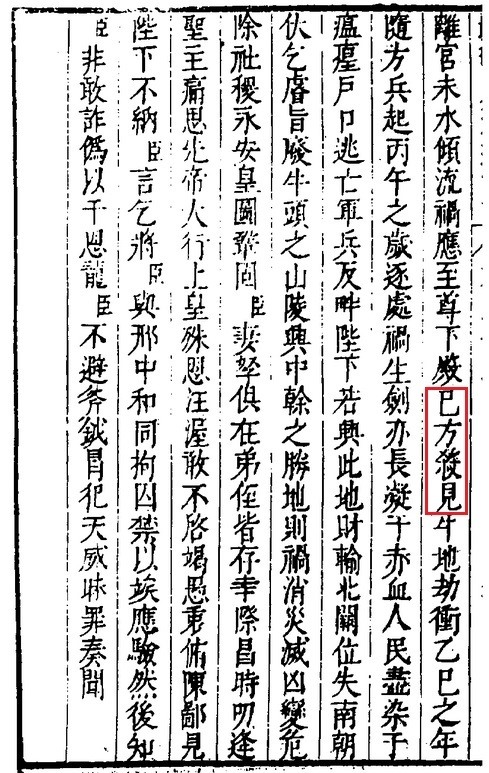 離宮未水傾流禍應至尊下殿巳方發見牛地劫衝乙巳之年
隨方兵起丙午之歲逐處禍生劍亦長凝千赤血人民盡染于
瘟𤸷戶口逃亡軍兵反畔陛下若興此地財輸北闕位失南朝
伏乞睿旨廢牛頭之山陵興中幹之勝地則禍消災滅凶變危
除社稷永安皇圖鞏固臣妻孥俱在弟侄皆存幸際昌時叨逢
聖主痛思先帝大行上皇殊恩汪渥敢不啓竭愚衷俯陳鄙見
陛下不納臣言乞將臣與邢中和同拘囚禁以竢應驗然後知
臣非敢詐僞以干恩寵臣不避斧鉞冒犯天威昧罪奏聞